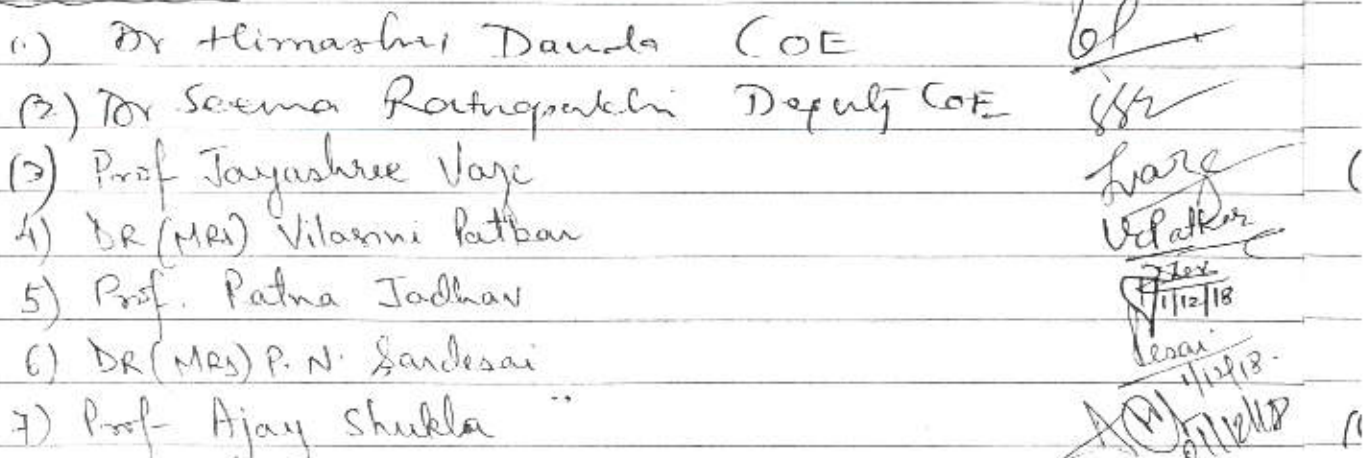 (1) Dr Himashri Danda COE
(2) Dr Seema Ratnaparkhi Deputy COE
(3) Prof Jayashree Vaze Lvaze
4) DR (MRS) Vilasini Patkar VPatkar
5) Prof. Patna Jadhav 1/12/18
6) DR (MRS) P. N. Sardesai Desai 1/12/18.
7) Prof Ajay Shukla 01/12/18